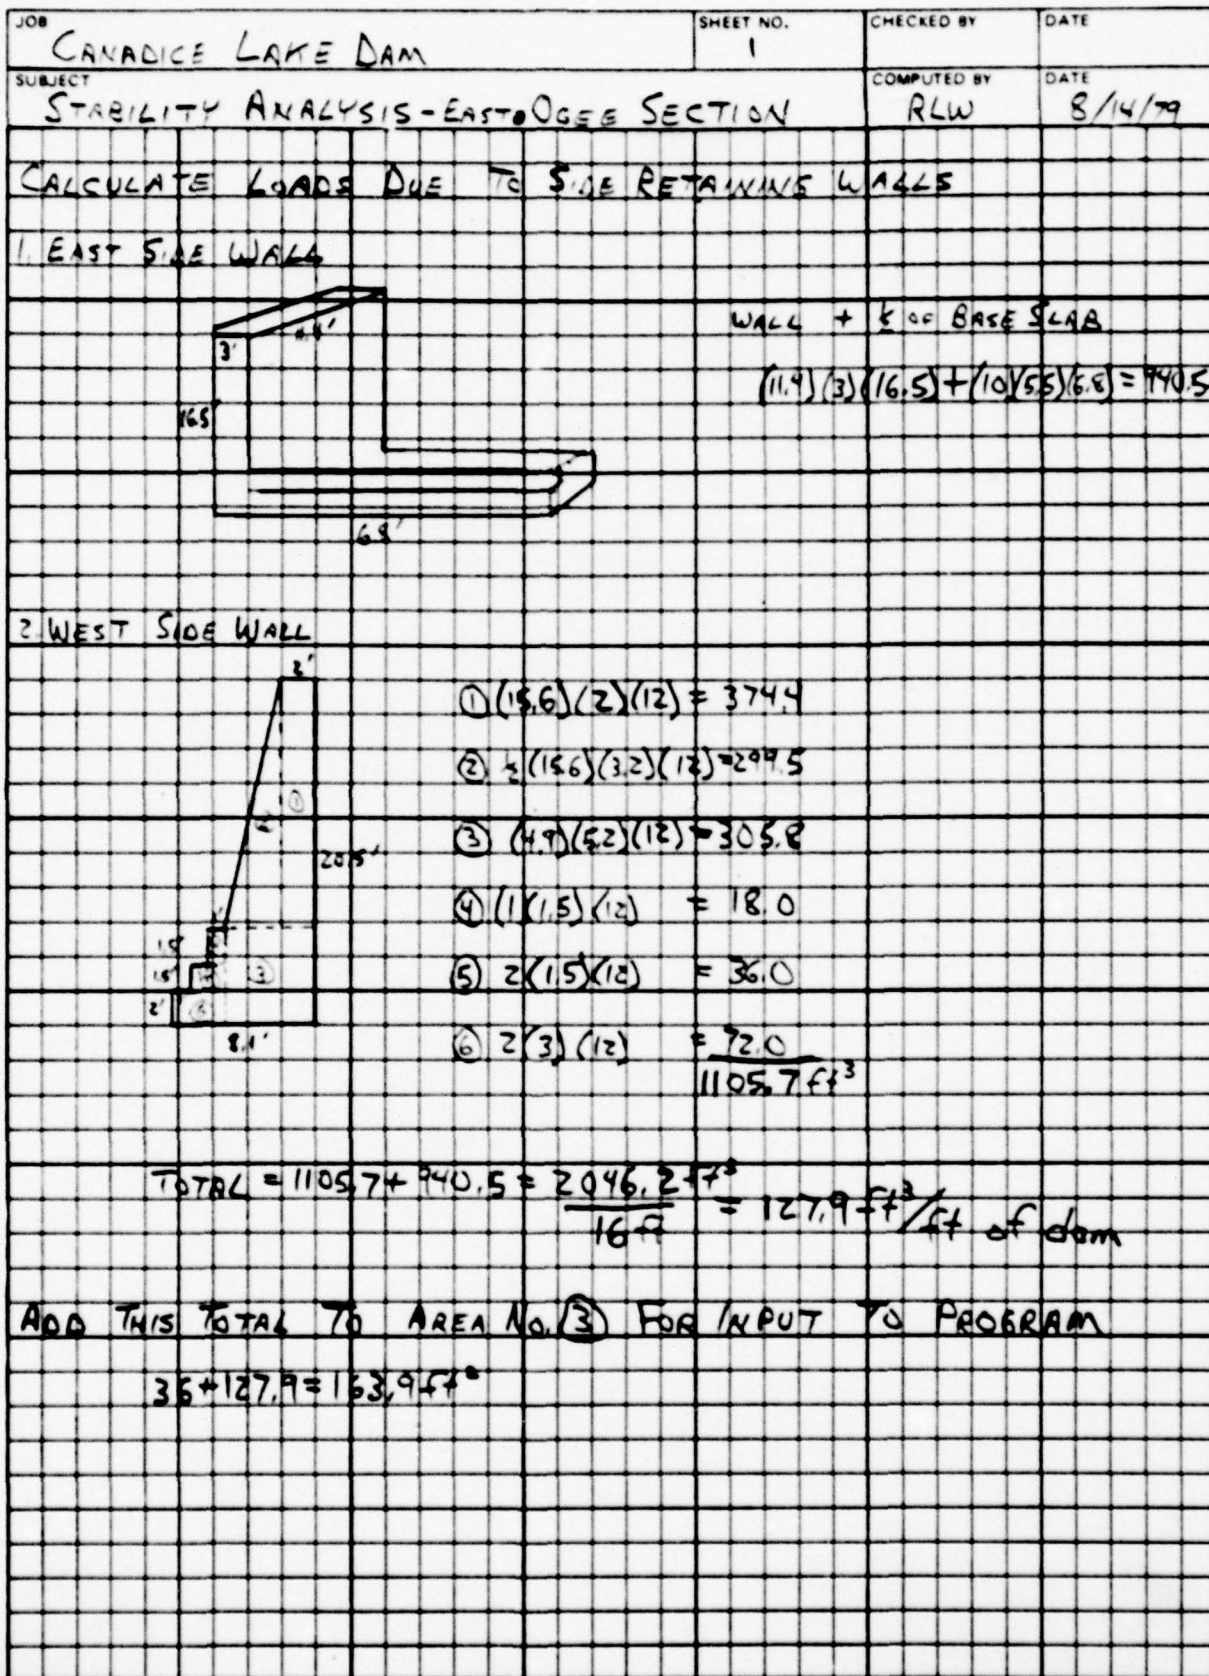 JOB
CANADICE LAKE DAM
SHEET NO.
1
CHECKED BY
DATE
SUBJECT
STABILITY ANALYSIS - EAST OGEE SECTION
COMPUTED BY
RLW
DATE
8/14/79
CALCULATE LOADS DUE TO SIDE RETAINING WALLS
1. EAST SIDE WALL
WALL + ½ OF BASE SLAB
3'
(11.4)(3)(16.5)+(10)(5.5)(6.8)=940.5
16.5
6.8'
2. WEST SIDE WALL
2'
① (15.6)(2)(12) = 374.4
② ½(15.6)(3.2)(12)=299.5
①
2
20.5'
③ (4.9)(5.2)(12)=305.8
④ (1(1.5)(12) = 18.0
1.5'
1.5'
③
⑤ 2(1.5)(12) = 36.0
2'
8.1'
⑥ 2(3)(12) = 72.0
1105.7 ft³
TOTAL = 1105.7 + 940.5 = 2046.2 ft³
16 ft
= 127.9 ft³/ft of dam
ADD THIS TOTAL TO AREA NO. ③ FOR INPUT TO PROGRAM
36+127.9=163.9 ft²